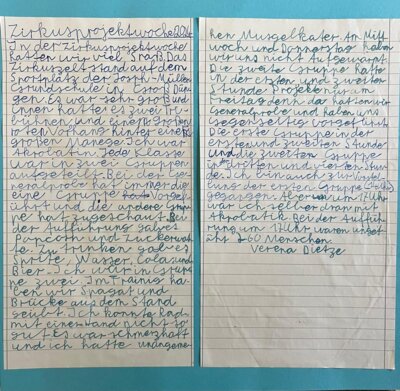 Zirkusprojektwoche 2024
In der Zirkusprojektwoche
hatten wir viel Spaß. Das
Zirkuszelt stand auf dem
Sportplatz der Joseph-Müller
Grundschule in Groß Dün
gen. Es war sehr groß und
Innen hatte es zwei Tri
bühnen und einen großen
roten Vorhang hinter einer
großen Manege. Ich war
Akrobatin. Jede Klasse
war in zwei Gruppen
aufgeteilt. Bei der Ge
neralprobe hat immer die
eine Gruppe Vorgef
ührt und die andere Grup
pe hat zugeschaut. Bei
der Aufführung gab es
Popcorn und Zuckerwa
tte. Zu trinken gab es
Sprite, Wasser, Cola und
Bier. Ich war in Grup
pe zwei. Im Trainig ha
ben wir Spagat und
Brücke aus dem Stand
geübt. Ich konnte Rad
mit einer Hand nicht so
gut. Es war schmerzhaft
und ich hatte unangene
hen Musgelkater. Am Mitt
woch und Donnerstag haben
wir uns nicht Aufgewärmt.
Die zweite Gruppe hatte
in der ersten und zweiten
Stunde Projekt nur am
Freitag denn da hatten wir
Generalprobe und haben uns
Gegenseitig vorgeführt.
Die erste Gruppe in der
ersten und zweiten Stunde
und die zweiten Gruppe
in dritten und vierten Stun
de. Ich bin auch zur Vorstel
lung der ersten Gruppe
gegangen. Aber um 17 Uhr
war ich selber dran mit
Akrobatik. Bei der Aufführ
ung um 17 Uhr waren ungef
ähr 260 Menschen.
Verena Dietze